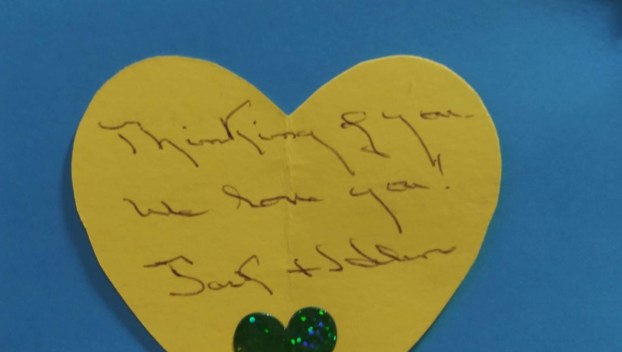 Thinking of you.
We love you!
Jack +